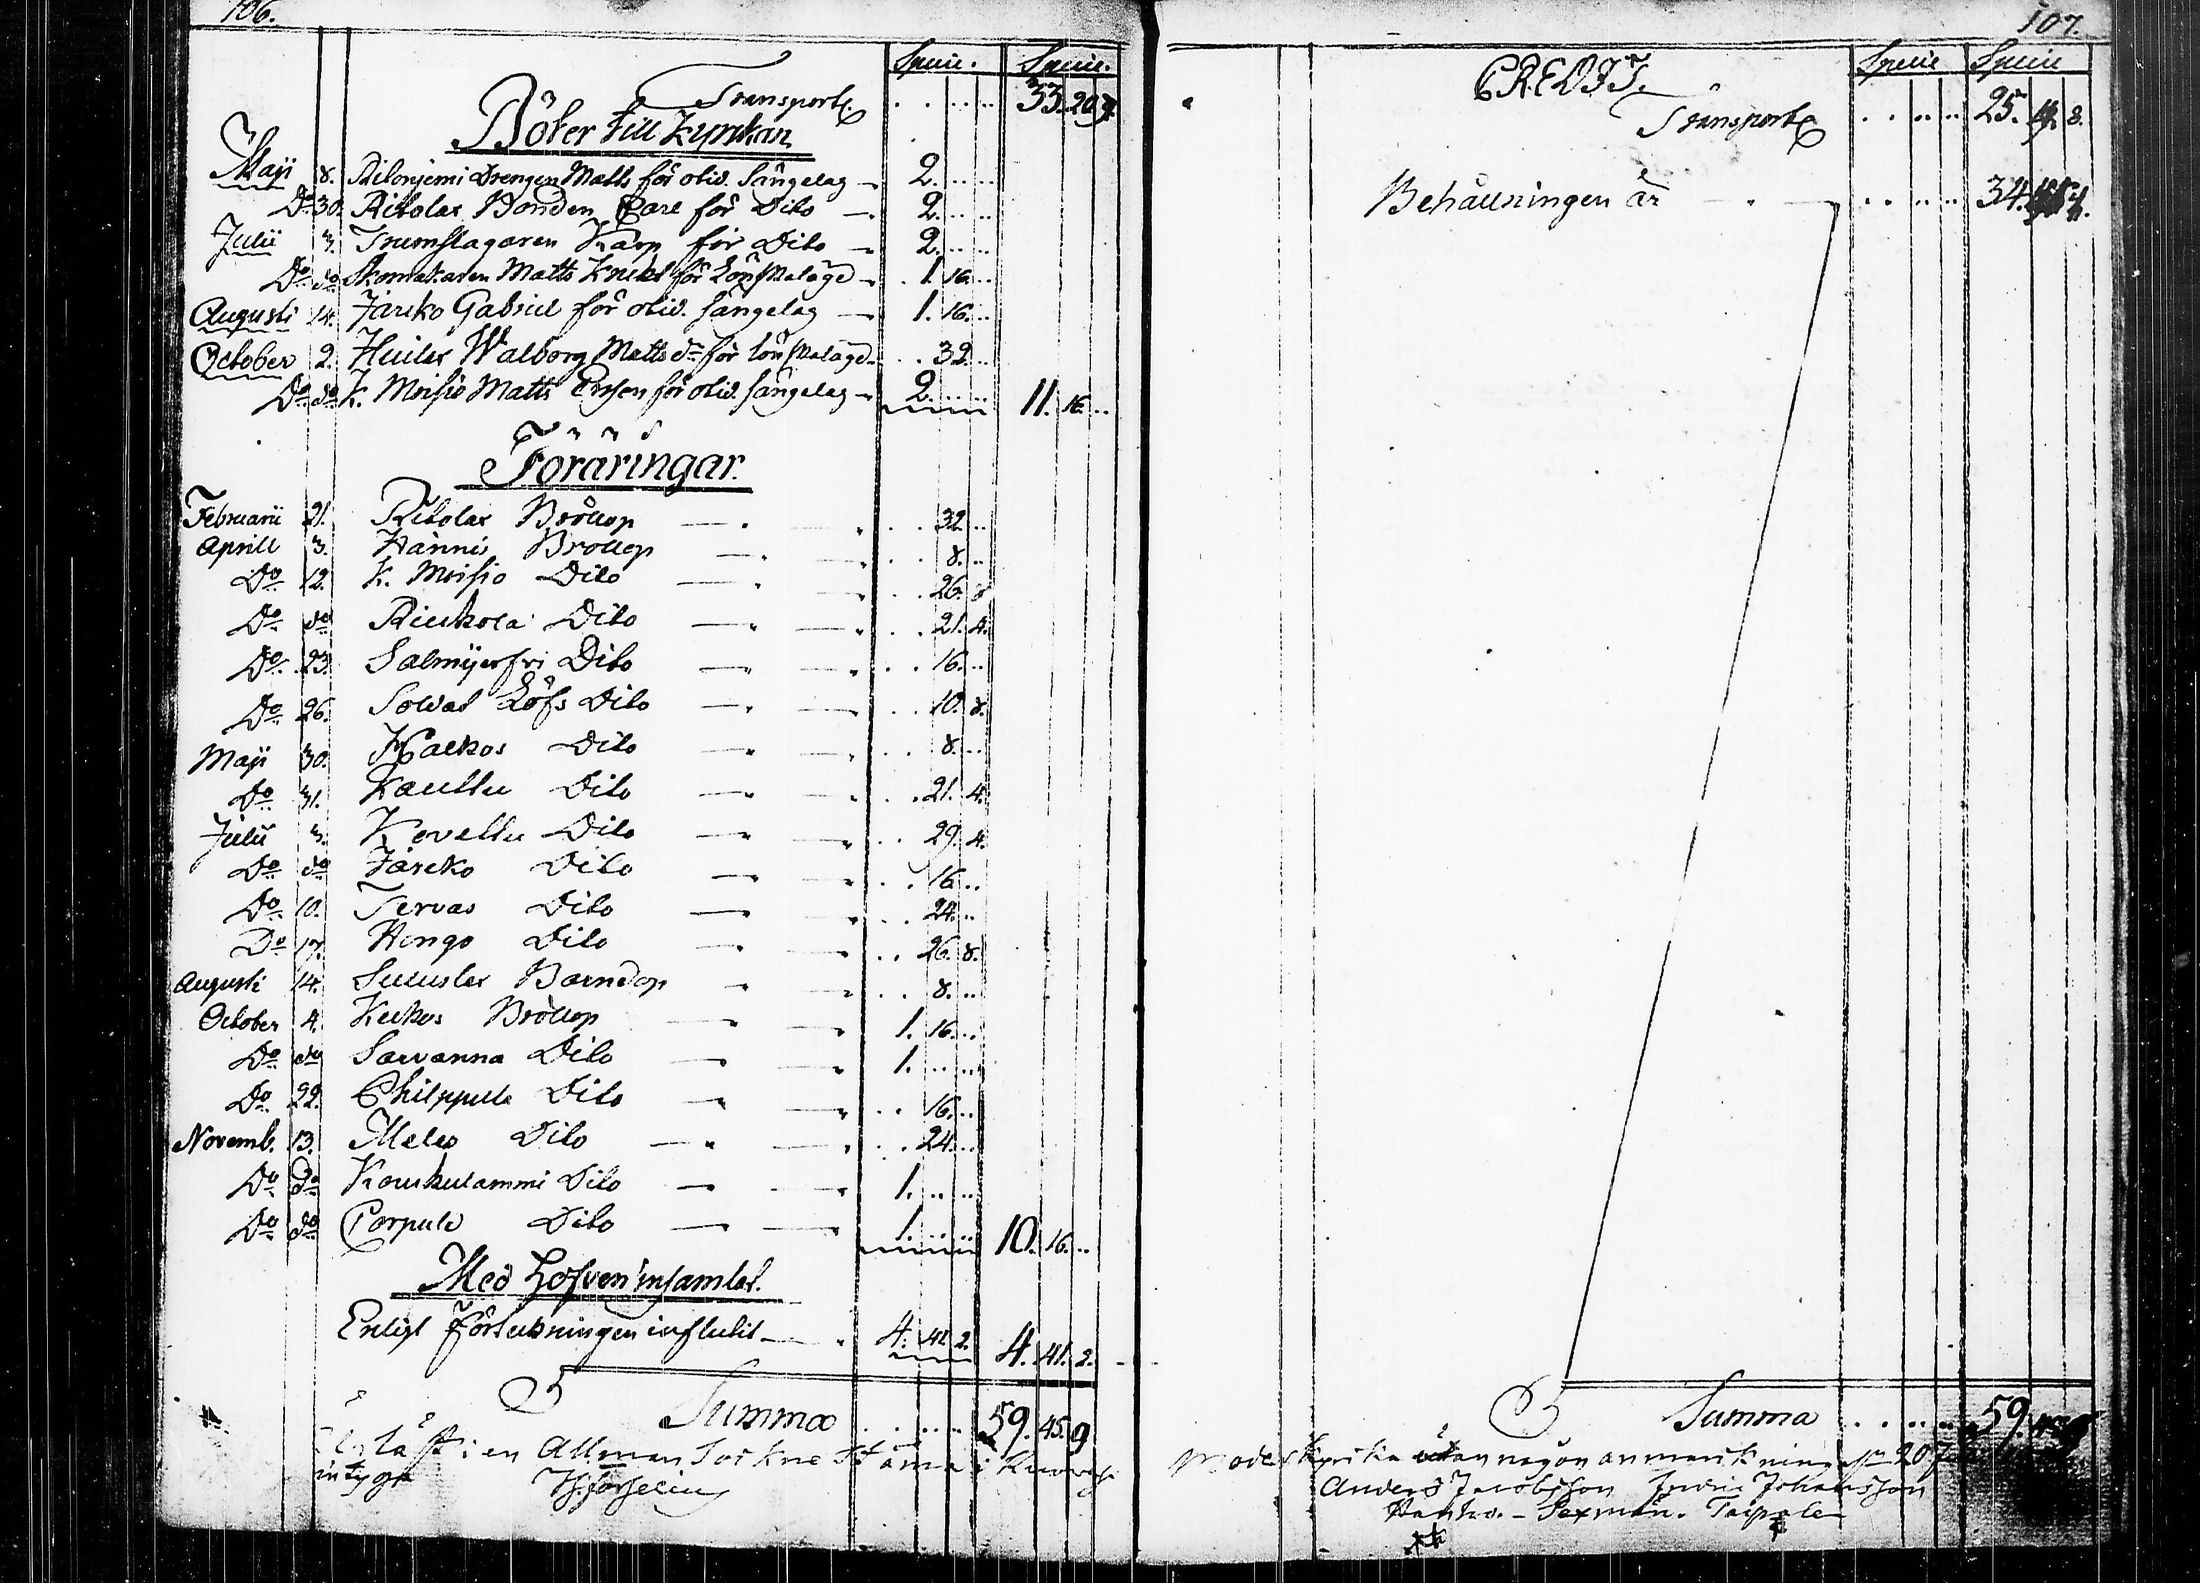 106.
Specie. Specie.
Transport . . .. .. 33. 20 9.
Böter till Kyrkan
Maji 8. Ritoniemi Drengen Matts för otid. Sängelag 2. .. ..
Do 30. Ritolax Bonden Carl för Dito 2. .. ..
Julii 3. Trumslagaren Karp för Dito 2. .. ..
Do do Skomakaren Matts för Lönskaläge 1. 16. ..
Augusti 14. Jareko Gabriel för otid. sängelag 1. 16. ..
October 2. Huilax Walborg Matts dr för lönskaläge . 32. ..
Do do K. Moisio Matts Ersson för otid. sängelag 2. .. .. 11. 16. ..
Föräringar.
Februarii 21. Ritolax Bröllop . . 32 ..
Aprill 3. Hannis Bröllop . . 8. ..
Do 12. K. Moisio Dito . . 26. 8
Do do Riukola Dito . . 21. 4.
Do 23. Salmijerfvi Dito . . 16. ..
Do 26. Soldat Löfs Dito . . 10. 8.
Maji 30. Kalkos Dito . . 8. ..
Do 31. Kauttu Dito . . 21. 4.
Julii 3. Kovettu Dito . . 29. 4.
Do do Jareko Dito . . 16. ..
Do 10. Tervas Dito . . 24. ..
Do 17. Hongo Dito . . 26. 8.
Augusti 14. Barndop . . 8. ..
October 4. Kukus Bröllop 1. 16. ..
Do do Sarvanna Dito 1. .. ..
Do 22. Philppula Dito . . 16. ..
Novemb. 13. Dito . . 24. ..
Do Do Koukulammi Dito 1. .. ..
Do do Corpula Dito 1. .. .. 10. 16. ..
Med Hofven insamlat.
Enligt förtekningen influtit 4. 41. 2. 4. 41. 2.
Summa . . .. .. 59. 45. 9
i en Allmän Sockne Stämma i Kuorvesi
intygar
107.
CREDIT. Specie Specie
Transport . . .. .. 25. 8.
Behållningen är . . .. .. 34.
Summa . . .. .. 59.
Moder Kyrkia utan någon anmärkning 20
Anders Jacobsson Johansson
Sexmän. Taipale